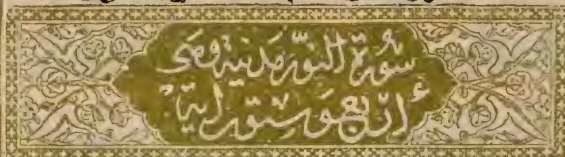 سورة النور مدنية وهى
أربع وستون اية